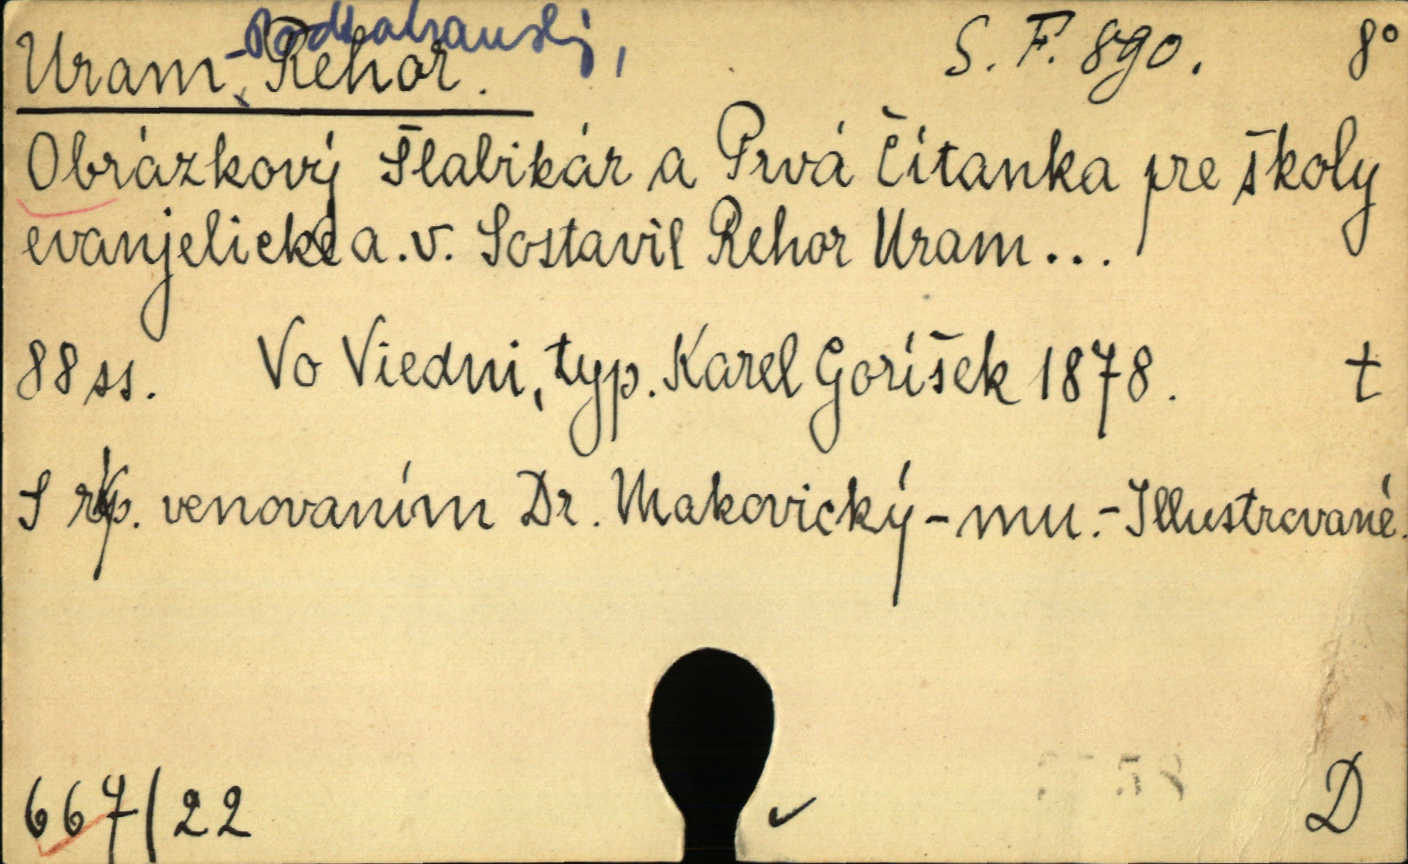 Uram-Podtatranský, Rehor. S. F. 890. 8°
Obrázkový Šlabikár a Prvá Čítanka pre školy
evanjelické a. v. Sostavil Rehor Uram...
88 ss. Vo Viedni, typ. Karel Goríšek 1878. t
S rkp. venovaním Dr. Makovický-mu.- Illustrované.
667/22 D